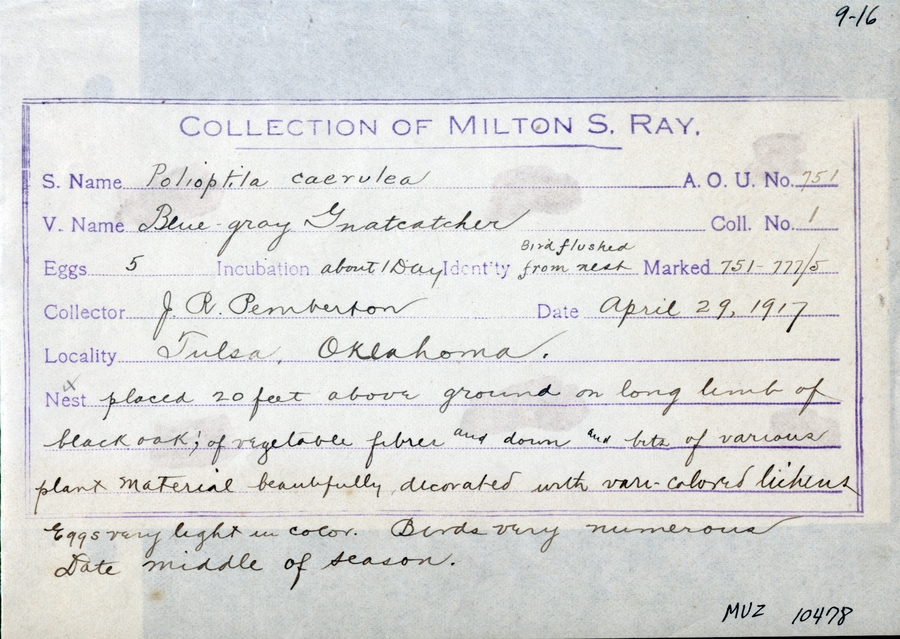 9-16
COLLECTION OF MILTON S. RAY.
S. Name Polioptila caerulea A. O. U. No. 751
V. Name Blue-gray Gnatcatcher Coll. No. 1
Eggs 5 Incubation about 1 Day Identity Bird flushed from nest Marked 751-777/5
Collector J. R. Pemberton Date April 29, 1917
Locality Tulsa, Oklahoma.
Nest x placed 20 feet above ground on long limb of
black oak; of vegetable fibres and down and bits of various
plant material beautifully decorated with vari-colored lichens
Eggs very light in color. Birds very numerous
Date middle of season.
MVZ 10478